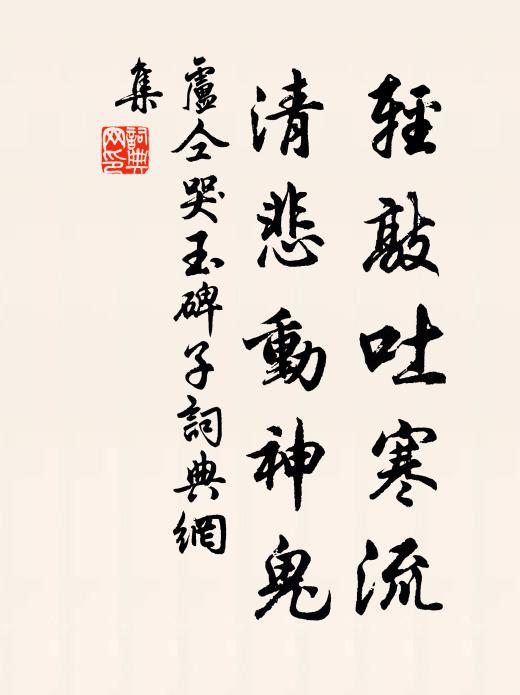 輕敲吐寒流
清悲動神鬼
盧仝哭玉碑子詞典網
集
詞典網印